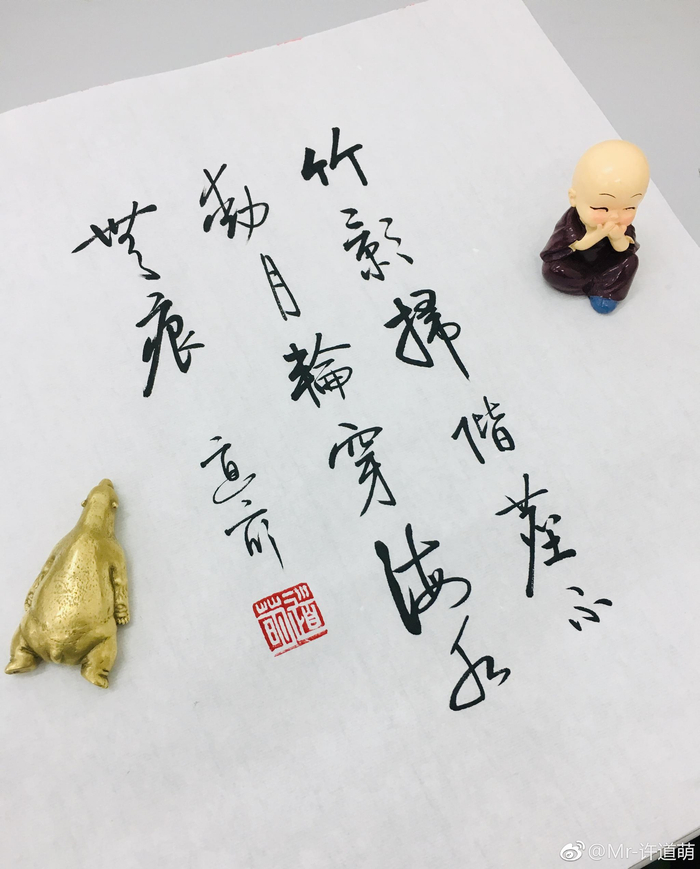 竹影掃階塵不
動月輪穿海水
無痕
道萌
道萌
@Mr-许道萌